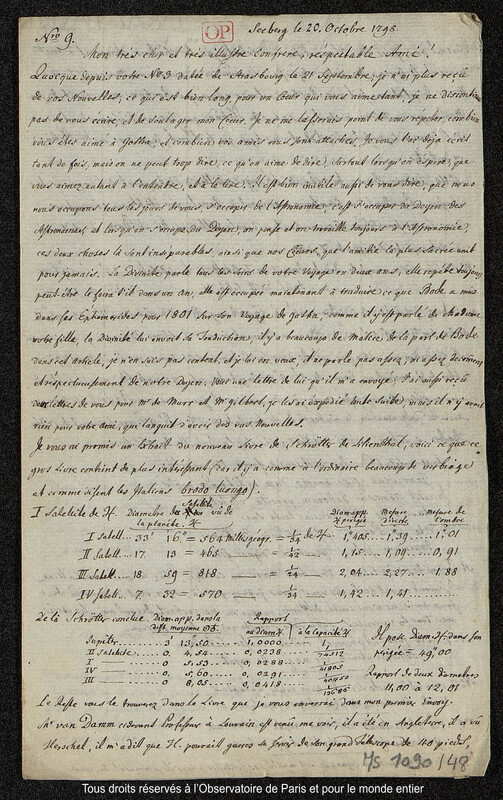 Nro 9.
OP
Seeberg le 20. Octobre 1798.
Mon très cher et très illustre Confrère, respectable Ami!
Quoique depuis votre No 3 datée de Strasbourg le 21 Septembre, je n'ai plus reçu
de vos Nouvelles, ce qui est bien long, pour un Coeur qui vous aime tant, je ne discontinue
pas de vous écrire, et de soulager mon Coeur. Je ne me lasserais point de vous repeter, combien
vous êtes aimé à Gotha, et combien vos amis vous sont attachés, Je vous l'ai deja écrit
tant de fois, mais on ne peut trop dire, ce qu'on aime de dire, surtout lorsqu'on espere, que
vous aimez autant à l'entendre, et à la lire; Il est bien inutile aussi de vous dire, que nous
nous occupons tous les jours de vous, s'occuper de l'Astronomie, c'est s'occuper du Doyen des
Astronomes, et lorsqu'on s'occupe du Doyen, on pense et on travaille toujours à l'Astronomie,
ces deux choses là sont inseparables, ainsi que nos Coeurs, que l'amitié la plus sacrée unit
pour jamais. La Divinité parle tous les soirs de votre Voyage en deux ans, elle repete toujours
peut être le fera t'il dans un an, elle est occupée maintenant à traduire ce que Bode a mis
dans ses Ephemerides pour 1801 sur son Voyage de Gotha, comme il y est parlé de
votre fille, la Divinité lui envoit sa Traduction; il y a beaucoup de Malice de la part de Bode
dans cet article, je n'en suis pas content, et je lui en veux, il ne parle pas assez, ni assez decemment
et respectueusement de notre Doyen. Voici une lettre de lui qu'il m'a envoyé, J'ai aussi reçu
des lettres de vous pour Mr de Murr et Mr Gilbert, je les ai expedié tout de suite, mais il n'y avait
rien pour votre ami, qui languit d'avoir des vos Nouvelles.
Je vous ai promis un Extrait du nouveau Livre de Schrötter de Lilienthal, voici ce que ce
gros Livre contient de plus interessant (car il y a comme à l'ordinaire beaucoup de verbiage
et comme disent les Italiens brodo lungo).
I Satellite de ♃. Diametre du Satellite vu de la planète ♃ Diam app. ♃ perigée mesure directe mesure de l'ombre
I Satell. 33' 16" = 564 milles géogr. = 1/34 de ♃ 1",405 1",39 1",01
II Satell. 17 13 = 465 1/42 1,15 1,09 0,91
III Satell. 18 59 = 818 1/24 2,04 2,27 1,88
IV Satell. 7 32 = 570 1/34 1,42 1,41
De là Schrötter conclue. Diam app. dans la dist. moyenne Rapport au diam ♃ à la capacité ♃ Il pose Diam ♃ dans son
Jupiter 3' 13",50 1,0000 1 perigée = 49",00
II Satellite 0 4,54 0,0238 1/74512 Rapport de deux diametres
I 0 5,53 0,0288 1/41805 11,00 à 12,01
IV 0 5,60 0,0291 1/40950
III 0 8,05 0,0418
Le Reste vous le trouverez dans le Livre que je vous enverrai dans mon premier envoy.
Mr van Damm cidevant Professeur à Louvain est venu me voir, il a été en Angleterre, il a vu
Herschel, il m'a dit que H. pouvait à son grand Telescope de 40 pieds,
Ms 1090 / 48
Tous droits réservés à l'Observatoire de Paris et pour le monde entier